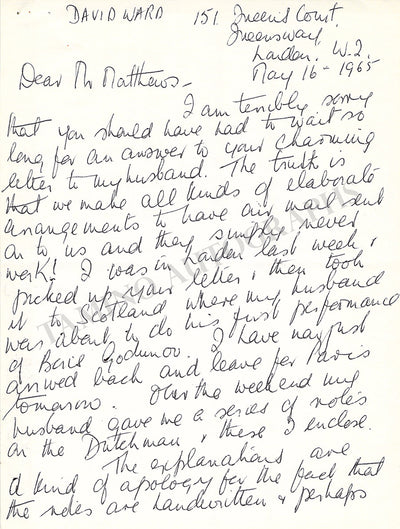 DAVID WARD 151 Queen's Court,
Queensway,
London, W.2.
May 16 - 1965
Dear Mr Matthews -
I am terribly sorry
that you should have had to wait so
long for an answer to your charming
letter to my husband. The truth is
that we make all kinds of elaborate
arrangements to have our mail sent
on to us and they simply never
work! I was in London last week &
picked up your letter & then took
it to Scotland where my husband
was about to do his first performance
of Boris Godunov. I have now just
arrived back and leave for Paris
tomorrow. Over the weekend my
husband gave me a series of notes
on the Dutchman & these I enclose.
The explanations are
a kind of apology for the fact that
the notes are handwritten & perhaps